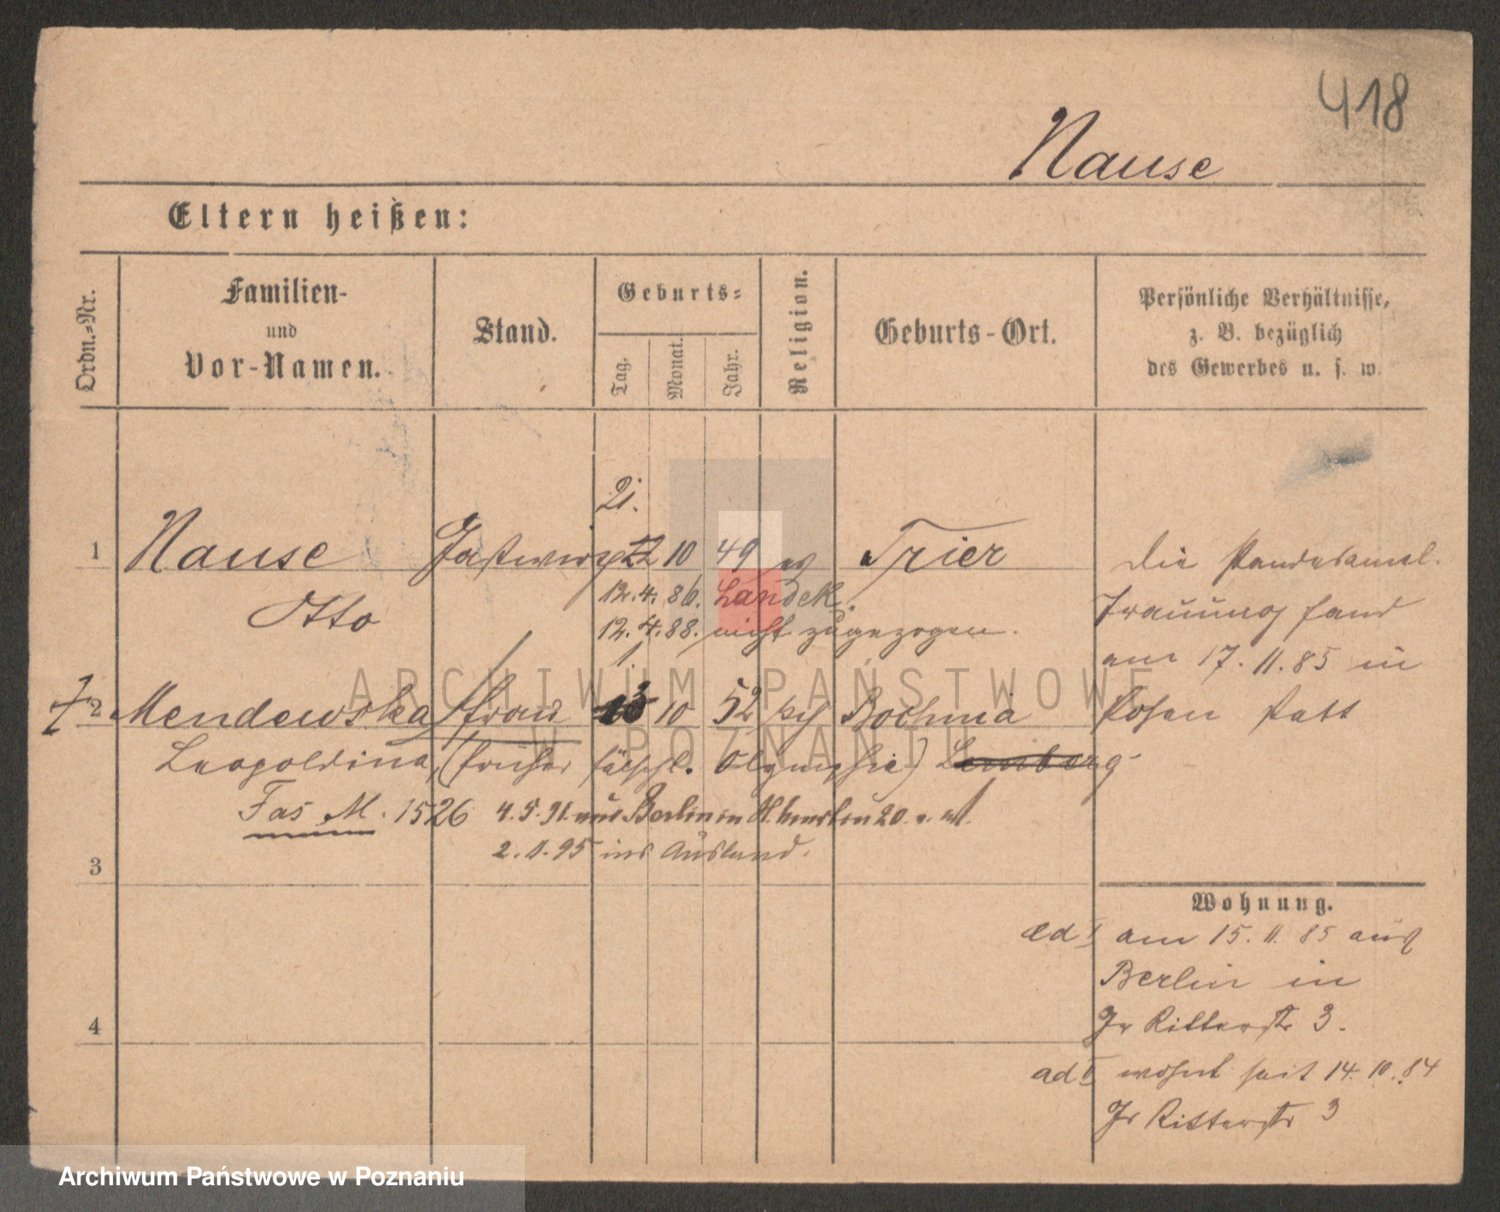 418
Nause
Eltern heißen:
Ordn.-Nr.
Familien-
und
Vor-Namen.
Stand.
Geburts-
Tag.
Monat.
Jahr.
Religion.
Geburts-Ort.
Persönliche Verhältnisse,
z. B. bezüglich
des Gewerbes u. s. w.
21.
1 Nause Gastwirth 22 10 49 Trier
Otto
12.4.86. Landek
12.4.88. nicht zugezogen.
Die Standesamtl.
Trauung fand
am 17.11.85 in
Posen statt
2 Mendewska Frau 13 10 52 Bochnia
Leopoldina, (früher fälschl. Olympia) Lemberg
Fas M. 1526 4.5.91. aus Berlin in 20.
2.1.95 ins Ausland.
3
4
Wohnung.
ad 1 am 15.11.85 aus
Berlin in
Gr Ritterstr 3.
ad wohnt seit 14.10.84
Gr Ritterstr 3
ARCHIWUM PAŃSTWOWE
W POZNANIU
Archiwum Państwowe w Poznaniu